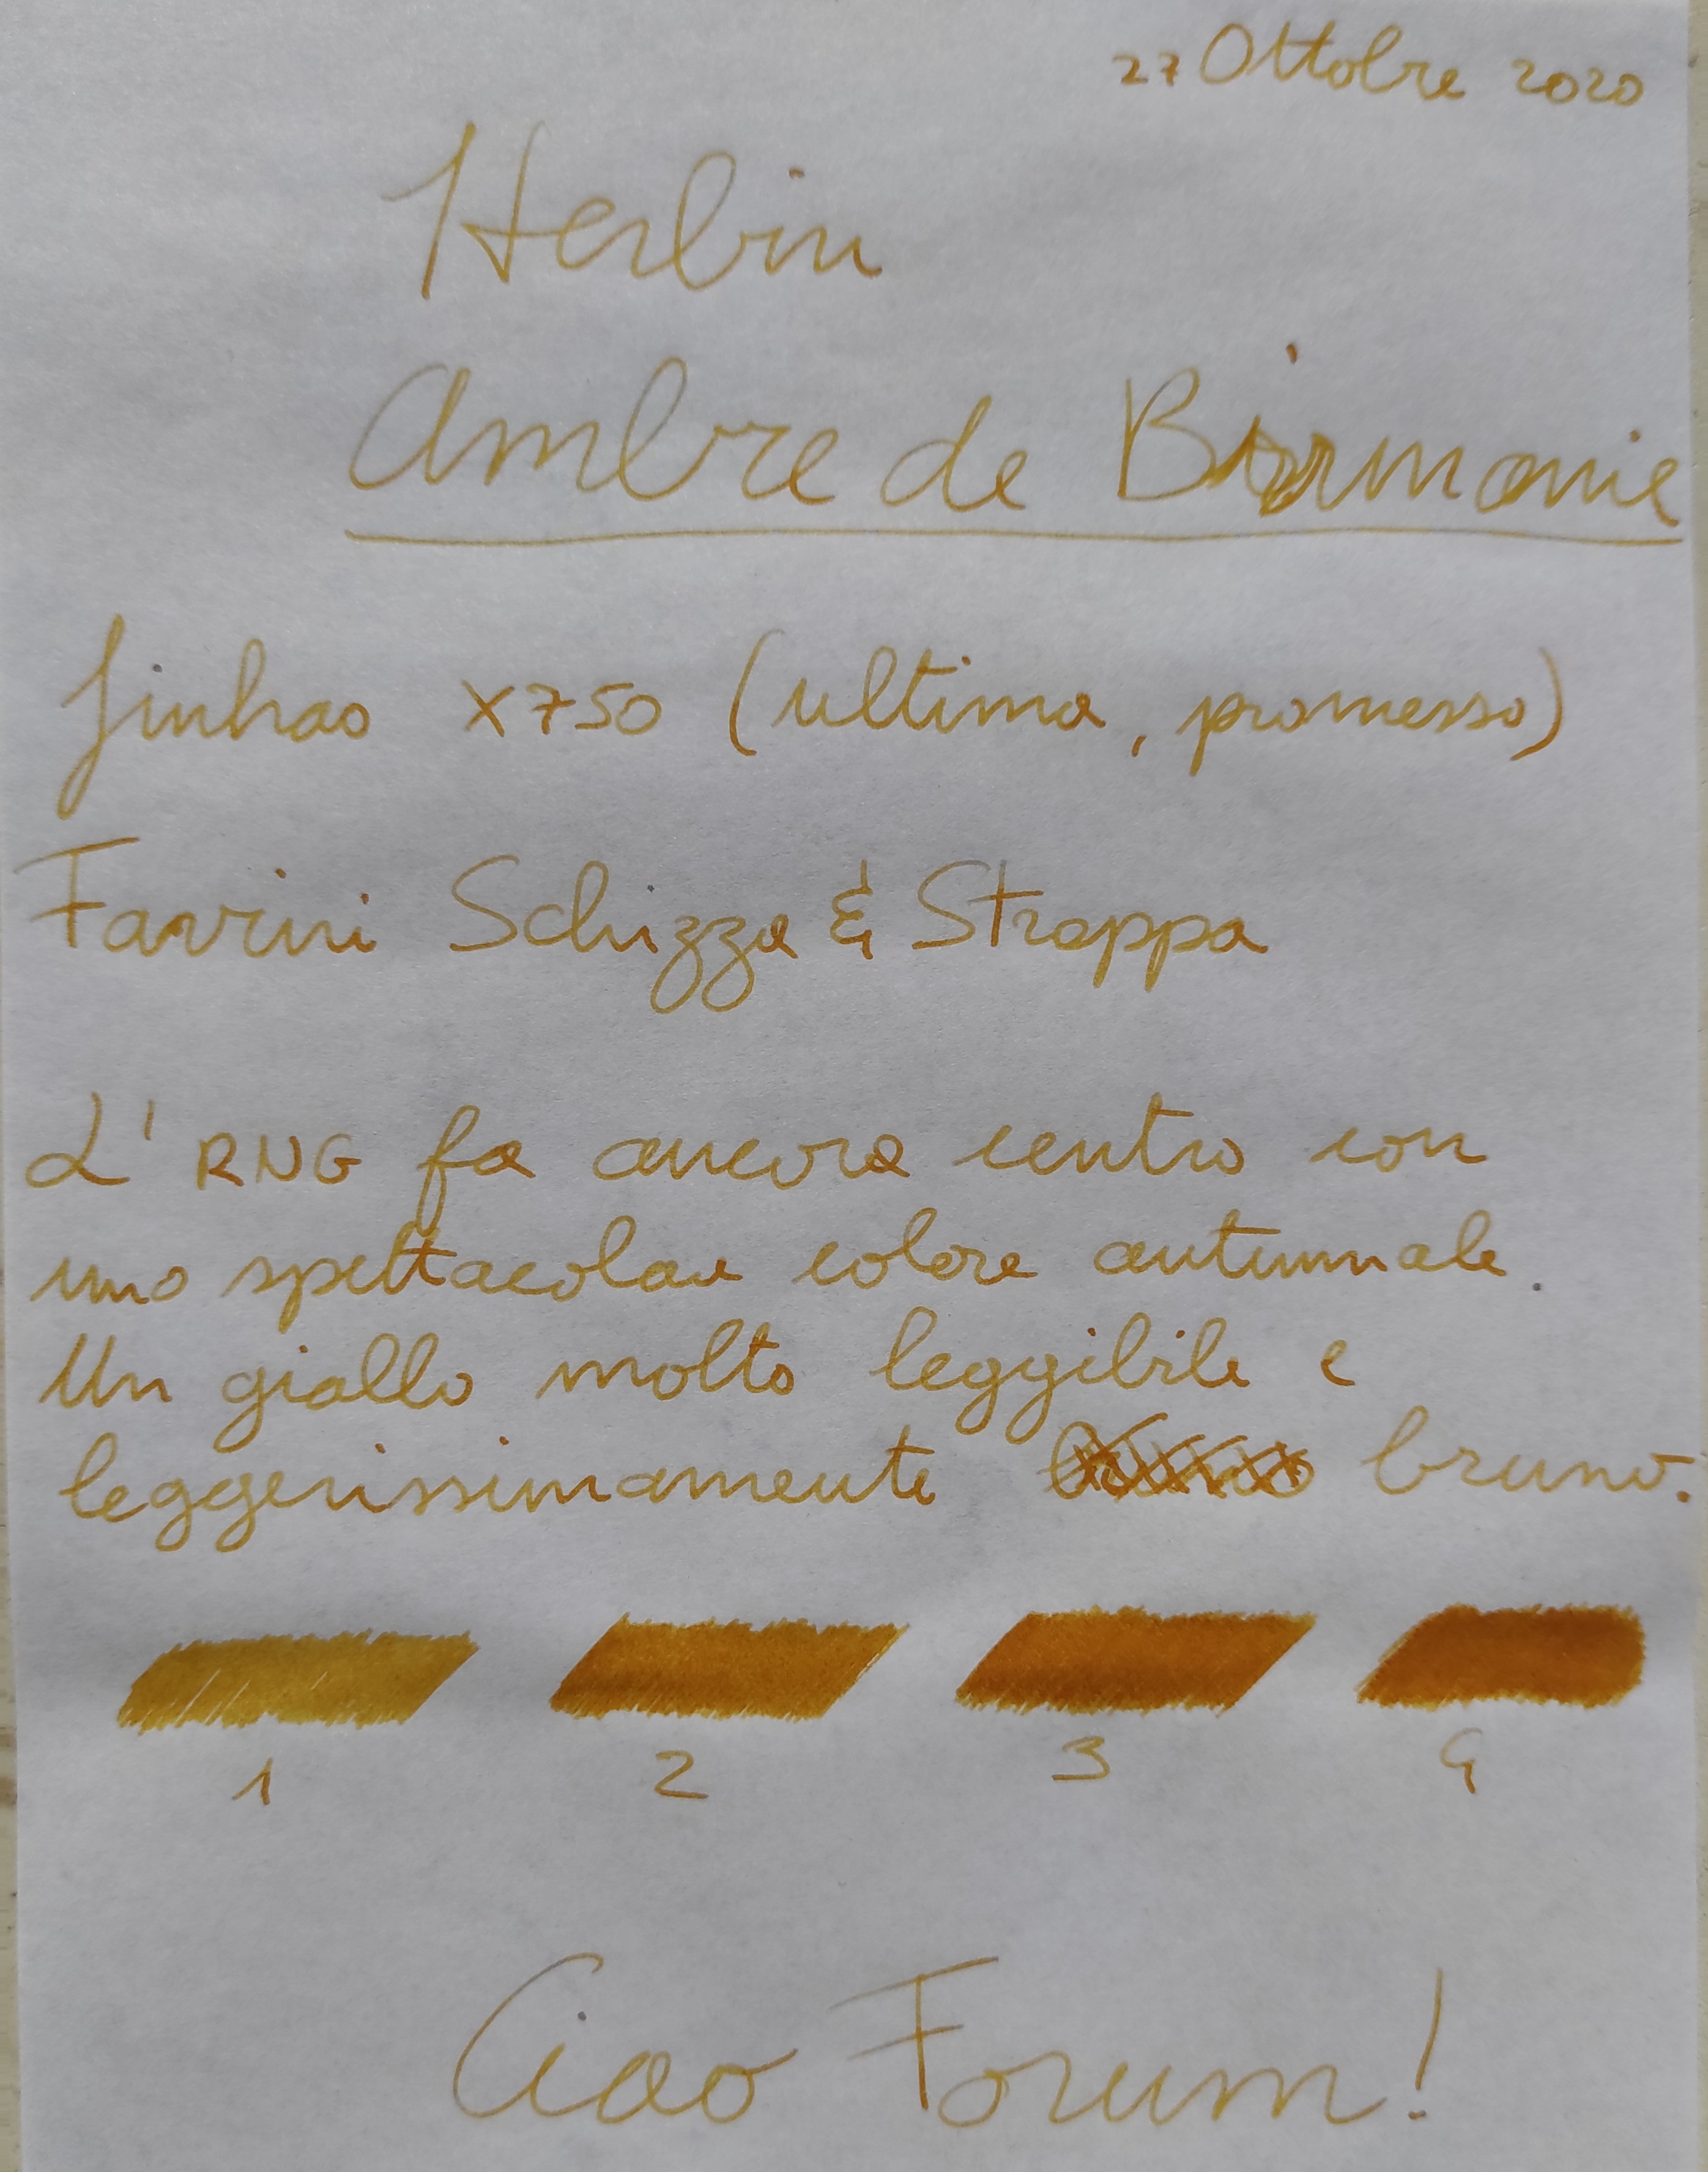 27 Ottobre 2020
Herbin
Ambre de Birmanie
Jinhao X750 (ultima, promesso)
Favini Schizza & Strappa
L'RNG fa ancora centro con
uno spettacolare colore autunnale.
Un giallo molto leggibile e
leggerissimamente bruno.
1 2 3 4
Ciao Forum!